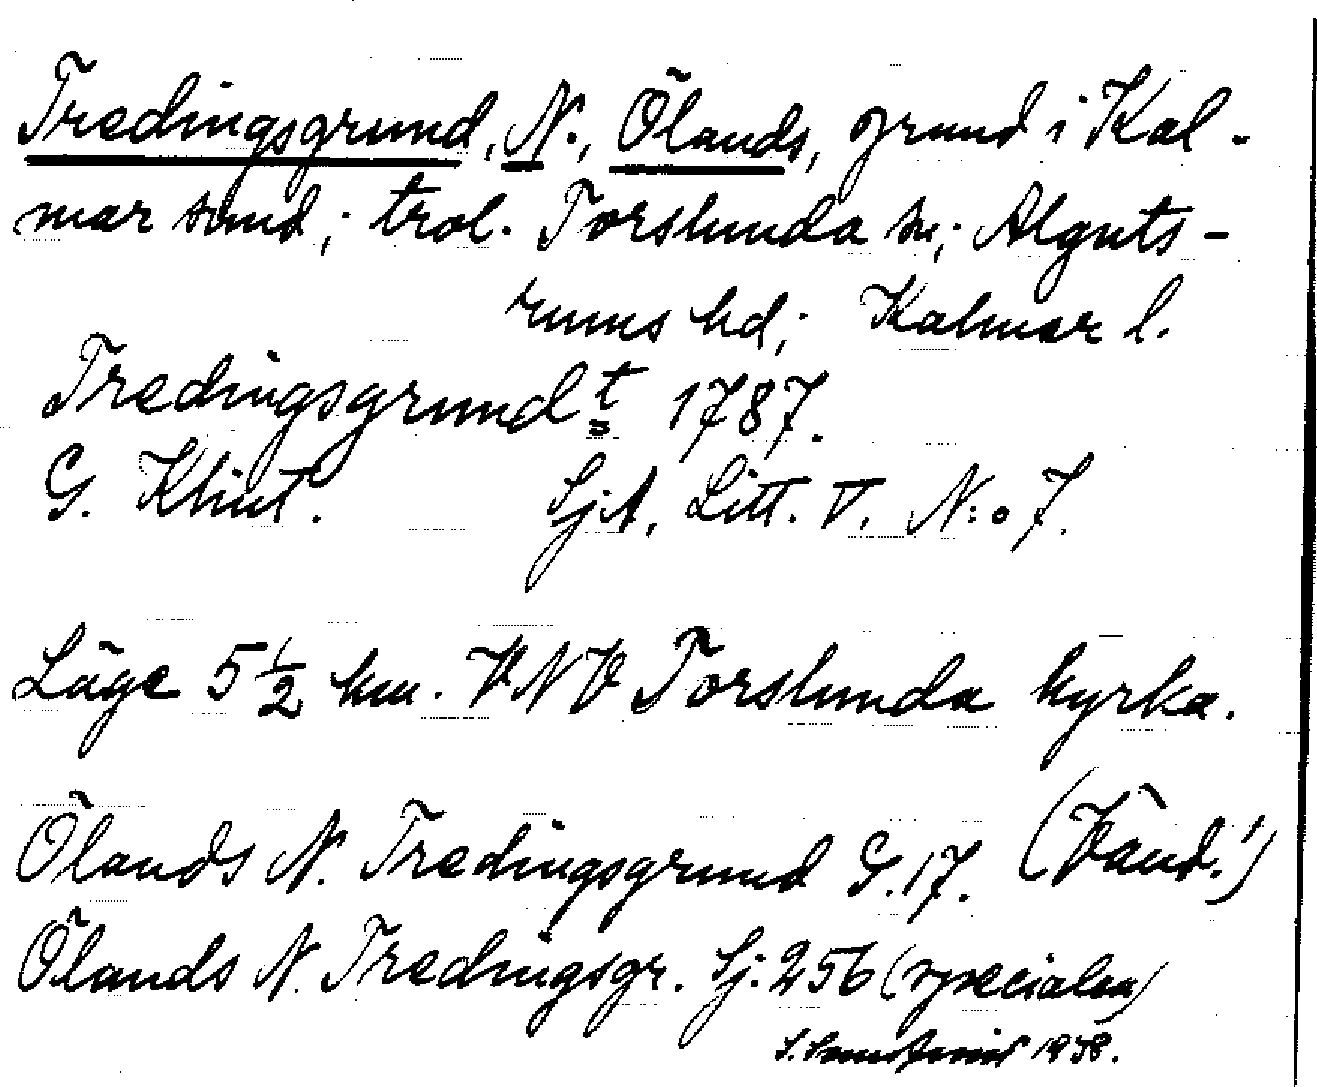 Tredingsgrund, N., Ölands, grund i Kal-
mar sund; trol. Torslunda sn; Alguts-
rums hd; Kalmar l.
Tredingsgrundt 1787.
G. Klint. SjA, Litt. V. N:o 7.
Läge 5 1/2 km. VNV Torslunda kyrka.
Ölands N. Tredingsgrund G.17. (Vänd!)
Ölands N. Tredingsgr. Sj. 256 (specialen)
S. 1938.